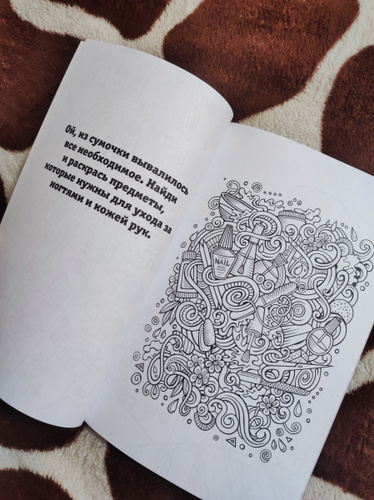 Ой, из сумочки вывалилось
все необходимое. Найди
и раскрась предметы,
которые нужны для ухода за
ногтями и кожей рук.
NAIL